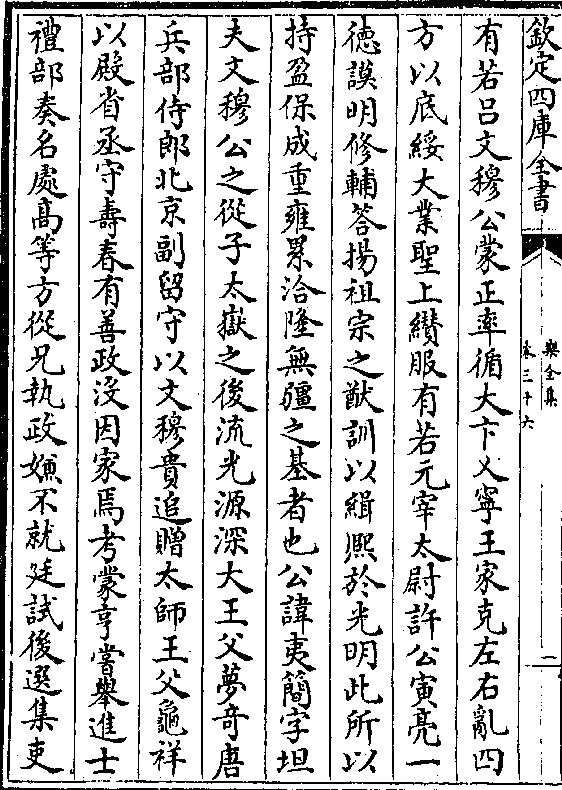 欽定四庫全書
樂全集
卷三十六
一
有若吕文穆公蒙正率循大卞乂寧王家克左右亂四
方以底綏大業聖上纉服有若元宰太尉許公寅亮一
徳謨明修輔答揚祖宗之猷訓以緝熙於光明此所以
持盈保成重雍累洽隆無疆之基者也公諱夷簡字坦
夫文穆公之從子太嶽之後流光源深大王父夢奇唐
兵部侍郎北京副留守以文穆貴追贈太師王父龜祥
以殿省丞守壽春有善政没因家焉考蒙亨嘗舉進士
禮部奏名處髙等方從兄執政嫌不就廷試後選集吏